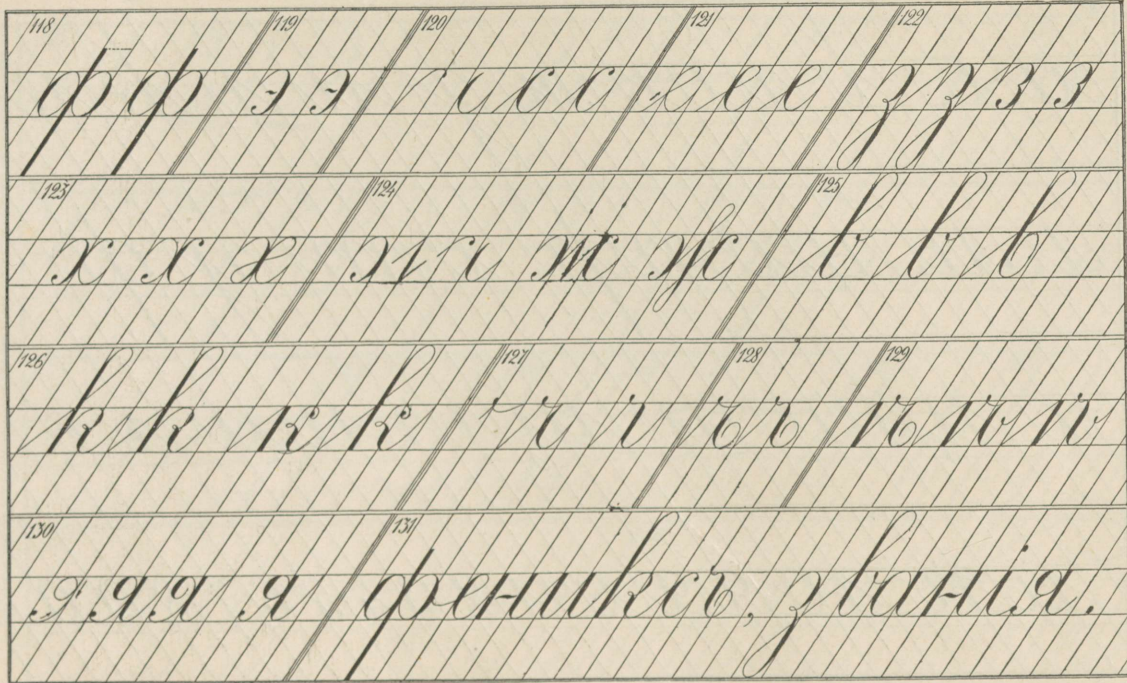 118 ф ф 119 э э 120 с с с 121 е е е 122 з з з з
123 х х х 124 ж ж 125 в в в
126 к к к к 127 г г 128 ъ ъ 129 п п п
130 я я я я 131 фениксъ, званія.